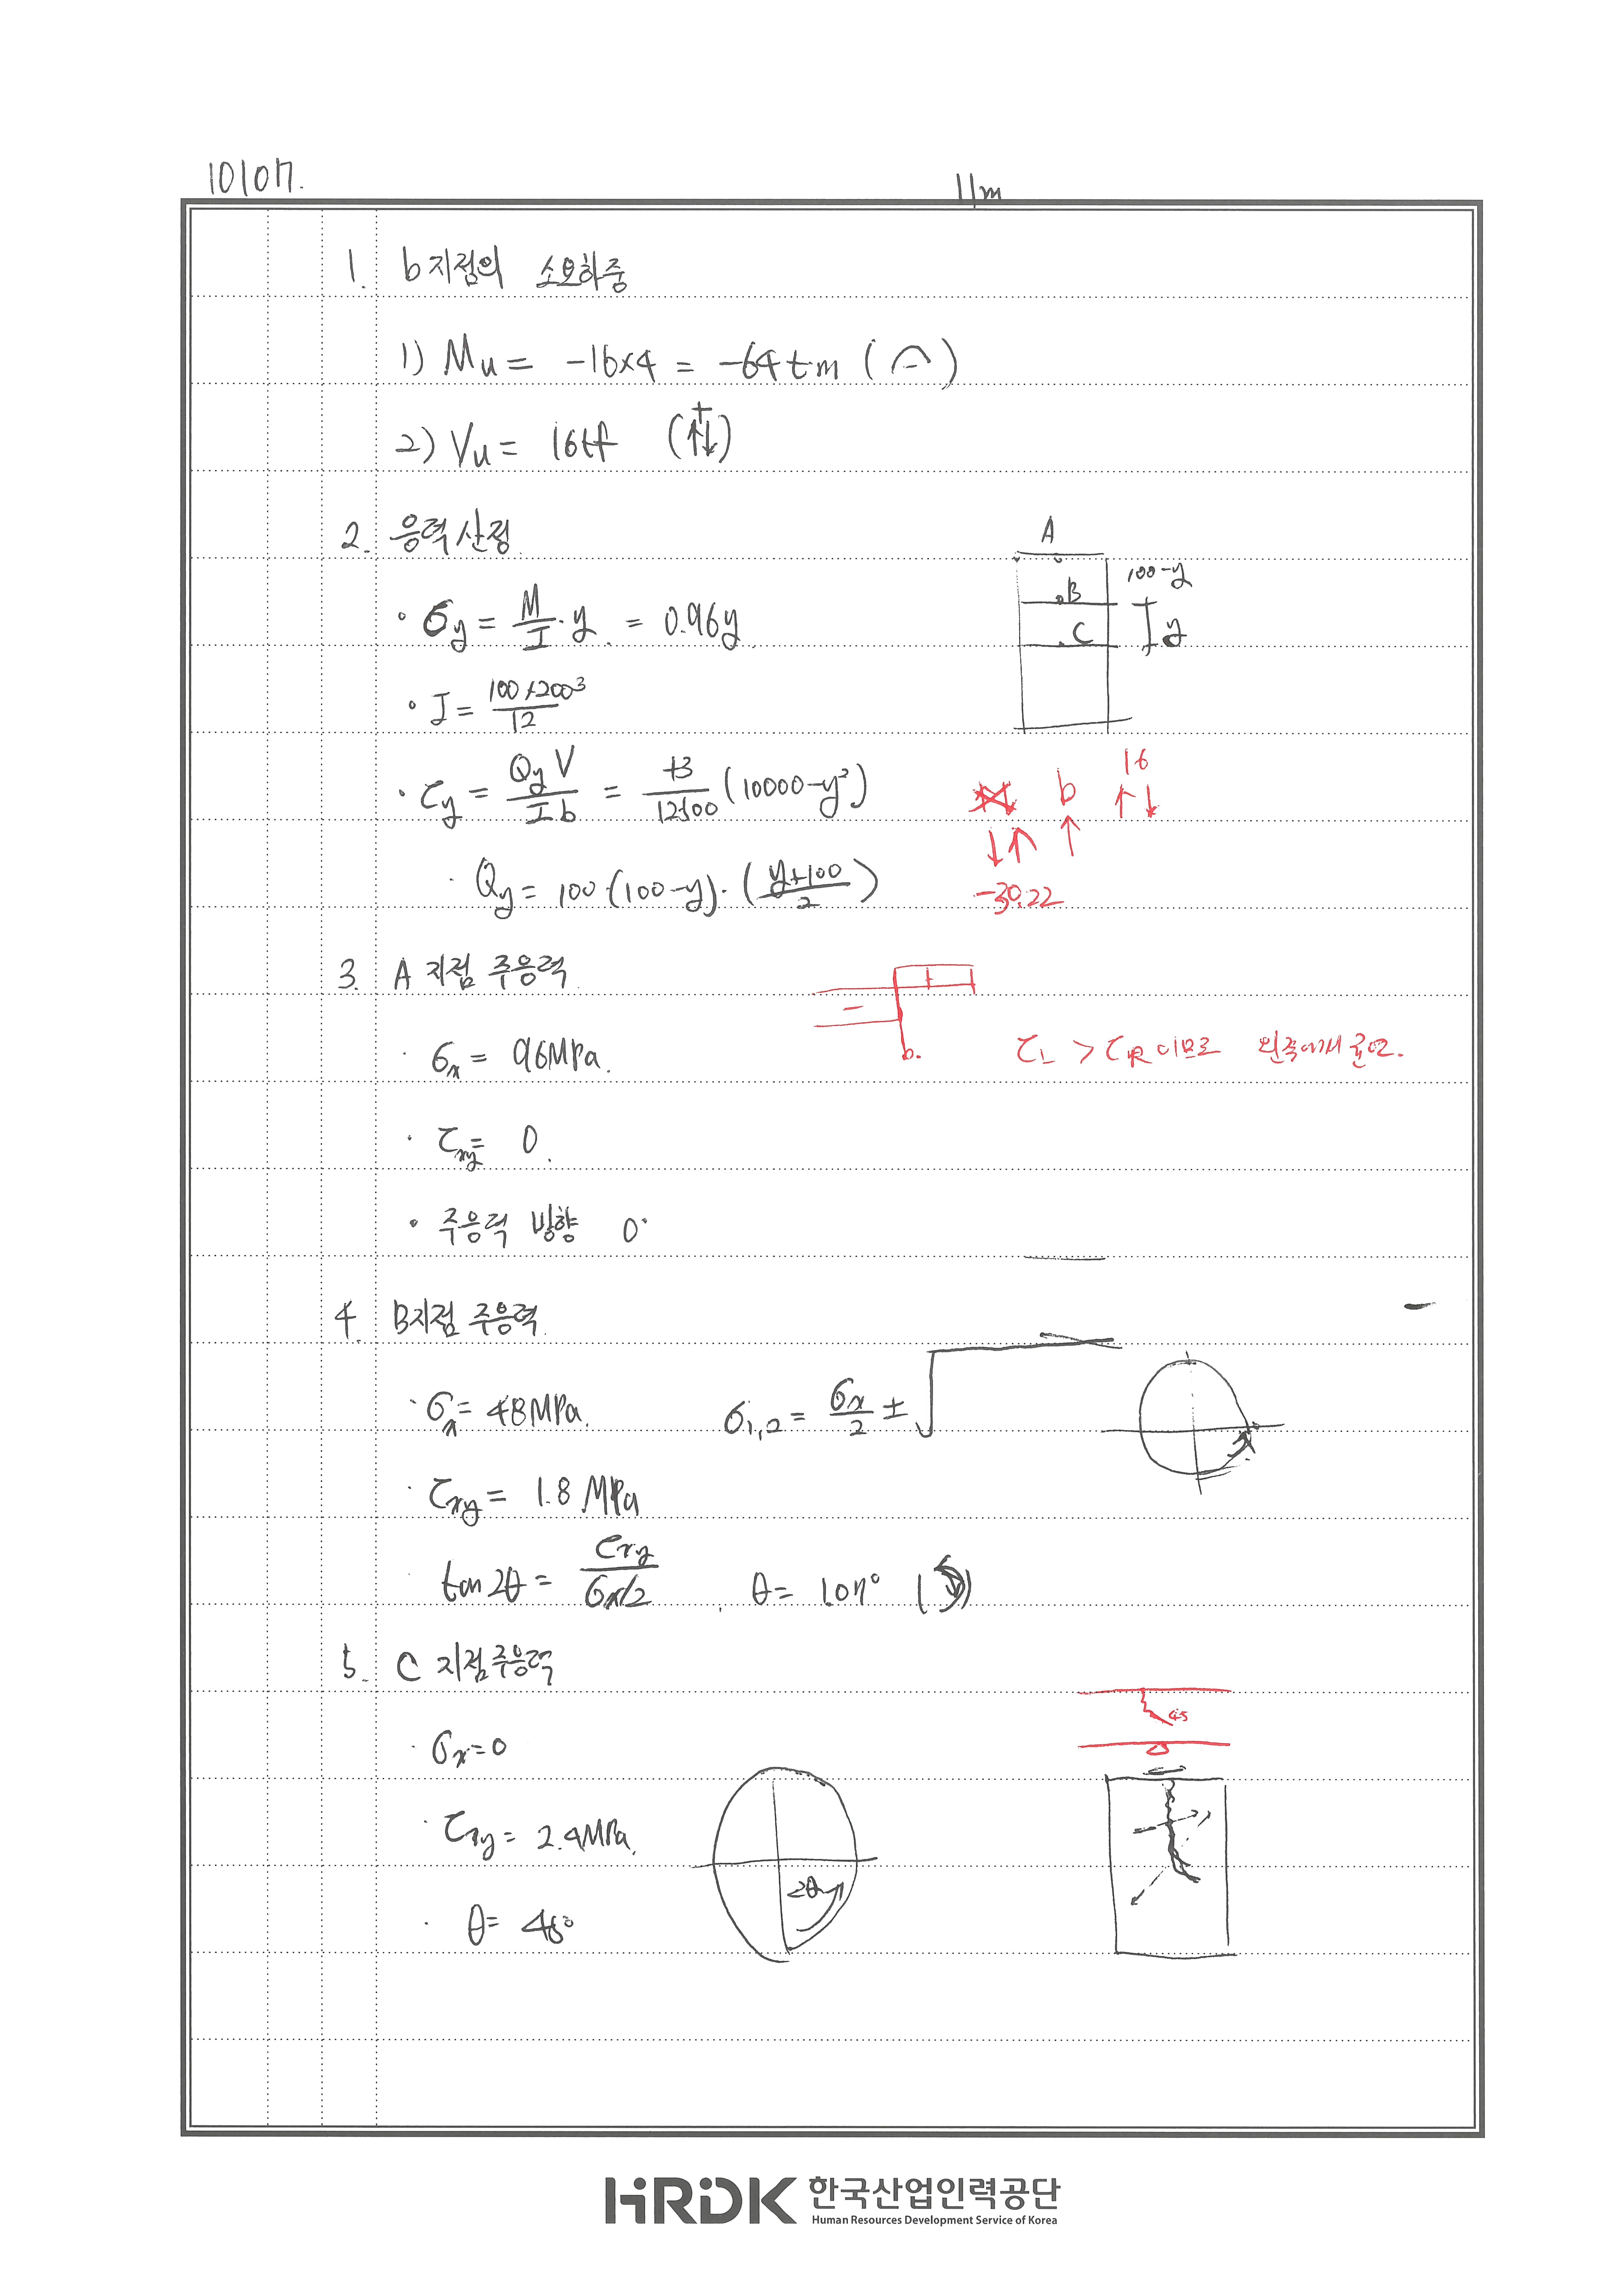 10107.
11m
1. b지점의 소요하중
1) Mu = -16×4 = -64tm ( )
2) Vu = 16tf (↑↓)
+
2. 응력산정
A
100-y
B
C
y
· σy = M/I · y = 0.96y
· I = 100×200³/12
· τy = Qy V / I b = +3/12500 (10000-y²)
b
16
↑↓
↓↑ ↑
-30.22
· Qy = 100·(100-y)·(y+100/2)
3. A 지점 주응력
+
-
b.
τL > τR 이므로 왼쪽에서 균열.
· σx = 96MPa.
· τxy = 0.
· 주응력 방향 0°
4. B지점 주응력
· σx = 48MPa.
σ1,2 = σx/2 ± √
· τxy = 1.8 MPa
· tan2θ = τxy / σx/2 . θ = 1.07° ( )
5. C 지점주응력
45
· σx=0
· τxy = 2.4MPa.
2θ
· θ = 45°
HRDK 한국산업인력공단
Human Resources Development Service of Korea